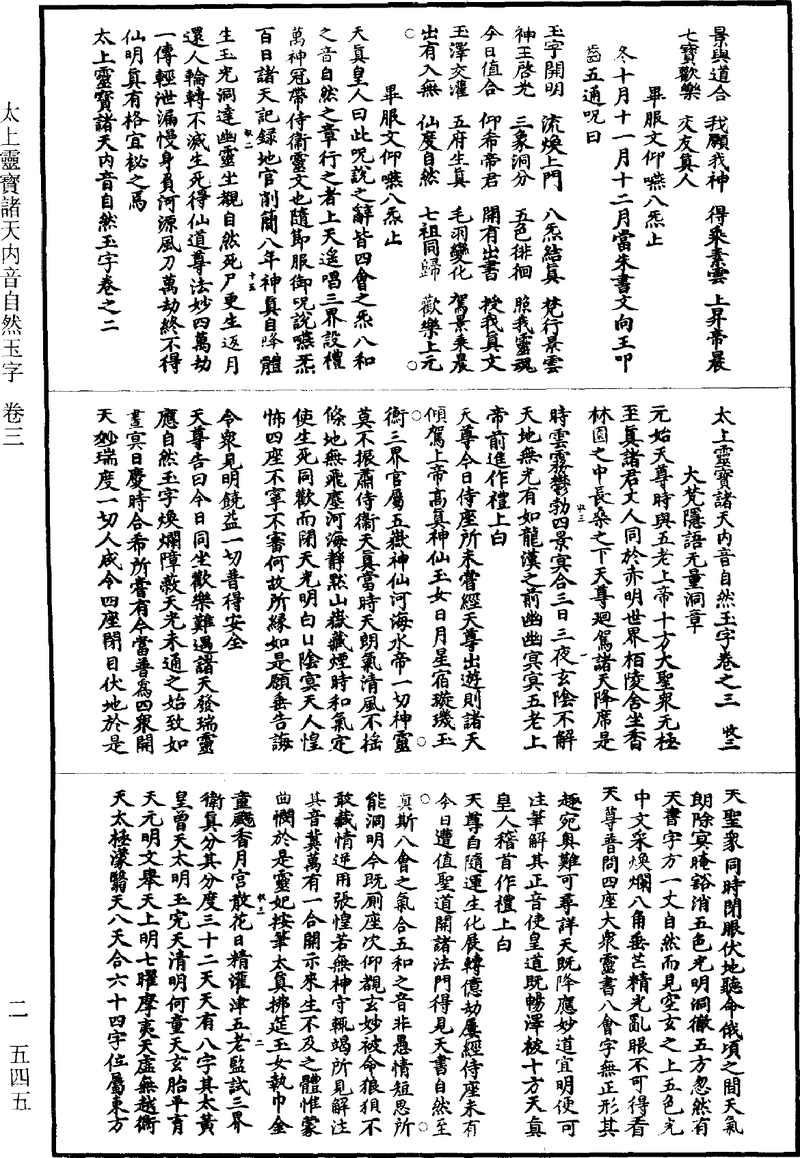 景與道合　我願我神　得乘素雲　上昇帝晨
七寶歡樂　交友真人
畢服文仰嚥八炁止
冬十月十一月十二月當朱書文向王叩
齒五通呪曰
玉字開明　流煥上門　八炁結真　梵行景雲
神王啓光　三象洞分　五色徘徊　照我靈魂
今日值合　仰希帝君　開有出書　授我真文
玉澤交灌　五府生真　毛羽變化　駕景乘晨
出有入無　仙度自然　七祖同歸　歡樂上元
畢服文仰嚥八炁止
天真皇人曰此呪說之辭皆四會之炁八和
之音自然之章行之者上天遥唱三界設禮
萬神冠帶侍衛靈文也隨節服御呪說嚥炁
百日諸天記録地官削簡八年神真自降體
生玉光洞達幽靈坐觀自然死尸更生返月
還人輪轉不滅生死得仙道尊法妙四萬劫
一傳輕泄漏慢身負河源風刀萬劫終不得
仙明真有格宜祕之焉
太上靈寶諸天内音自然玉字卷之二
太上靈寶諸天内音自然玉字卷之三　收三
大梵隱語无量洞章
元始天尊時與五老上帝十方大聖衆无極
至真諸君丈人同於赤明世界栢陵舍坐香
林園之中長桑之下天尊廻駕諸天降席是
時雲霧鬱勃四景冥合三日三夜玄陰不解
天地無光有如龍漢之前幽幽冥冥五老上
帝前進作禮上白
天尊今日侍座所未嘗經天尊出遊則諸天
傾駕上帝高真神仙玉女日月星宿璇璣玉
衡三界官屬五嶽神仙河海水帝一切神靈
莫不振肅侍衛天真當時天朗氣清風不摇
條地無飛塵河海靜默山嶽藏煙時和氣定
使生死同歡而閉天光明白日陰冥天人惶
怖四座不寧不審何故所緣如是願垂告誨
令衆見明饒益一切普得安全
天尊告曰今日同坐歡樂難遇諸天發瑞靈
應自然玉字煥爛障蔽天光未通之始致如
晝冥日慶時合希所嘗有今當普爲四衆開
天妙瑞度一切人咸令四座閉目伏地於是
天聖衆同時閉眼伏地聽命俄頃之間天氣
朗除冥晻豁消五色光明洞徹五方忽然有
天書字方一丈自然而見空玄之上五色光
中文采煥爛八角垂芒精光亂眼不可得看
天尊普問四座大衆靈書八會字無正形其
趣宛奥難可尋詳天既降應妙道宜明便可
注筆解其正音使皇道既暢澤被十方天真
皇人稽首作禮上白
天尊自隨運生化展轉億劫屢經侍座未有
今日遭值聖道開諸法門得見天書自然至
真斯八會之氣合五和之音非愚情短思所
能洞明今既厠座次仰觀玄妙被命狼狽不
敢藏情逆用張惶若無神守輒竭所見解注
其音冀萬有一合開示來生不及之體惟蒙
曲憫於是靈妃按筆太真拂筵玉女執巾金
童颺香月宮散花日精灌津五老監試三界
衛真分其分度三十二天天有八字其太黃
皇曾天太明玉完天清明何童天玄胎平育
天元明文舉天上明七曜摩夷天虛無越衡
天太極濛翳天八天合六十四字位屬東方
太上靈寶諸天内音自然玉字　卷三
二　五四五